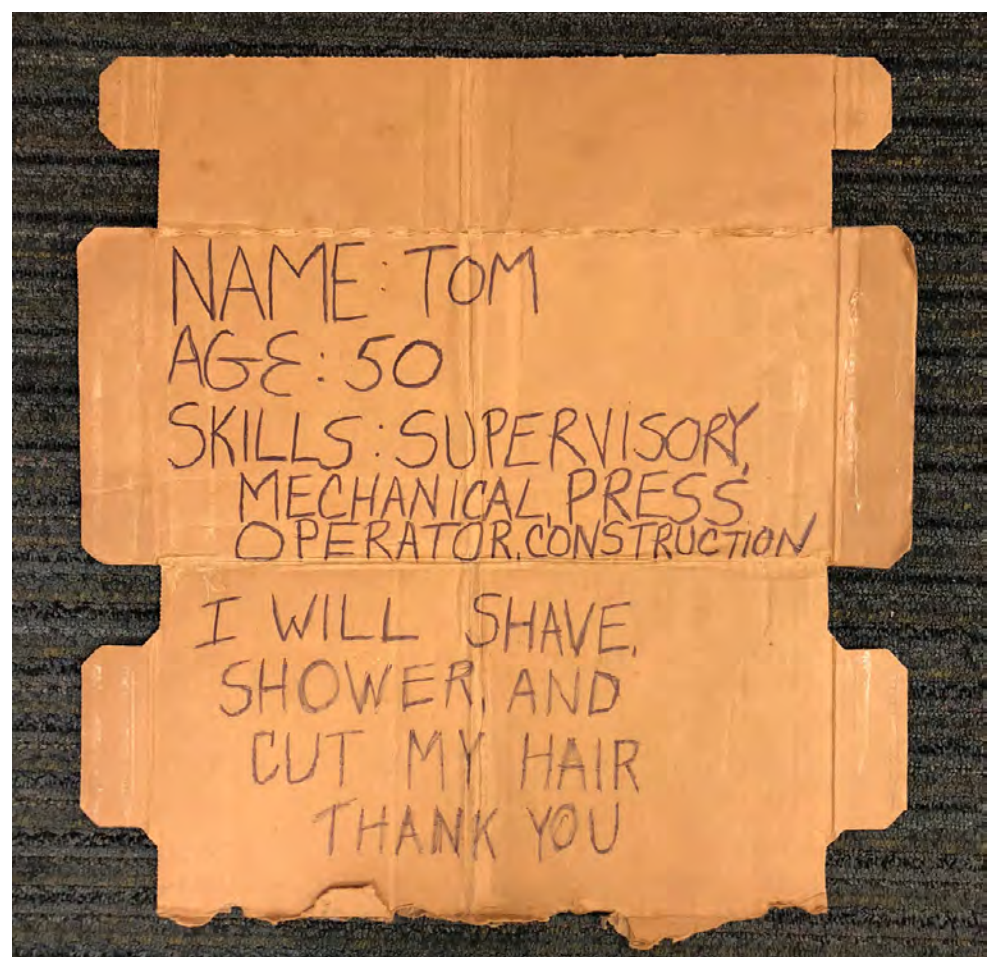 NAME: TOM
AGE: 50
SKILLS: SUPERVISORY,
MECHANICAL, PRESS
OPERATOR, CONSTRUCTION
I WILL SHAVE,
SHOWER, AND
CUT MY HAIR
THANK YOU